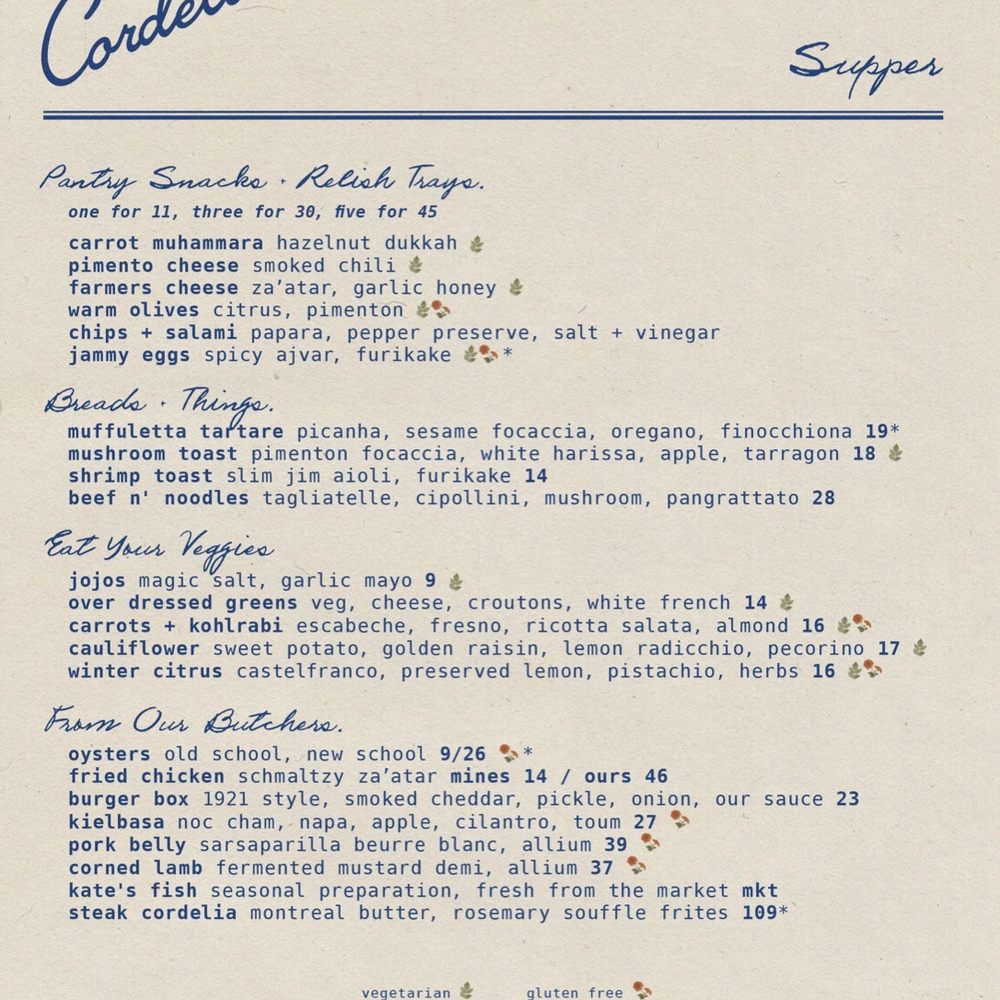 Supper
Pantry Snacks · Relish Trays.
one for 11, three for 30, five for 45
carrot muhammara hazelnut dukkah
pimento cheese smoked chili
farmers cheese za’atar, garlic honey
warm olives citrus, pimenton
chips + salami papara, pepper preserve, salt + vinegar
jammy eggs spicy ajvar, furikake *
Breads · Things.
muffuletta tartare picanha, sesame focaccia, oregano, finocchiona 19*
mushroom toast pimenton focaccia, white harissa, apple, tarragon 18
shrimp toast slim jim aioli, furikake 14
beef n' noodles tagliatelle, cipollini, mushroom, pangrattato 28
Eat Your Veggies
jojos magic salt, garlic mayo 9
over dressed greens veg, cheese, croutons, white french 14
carrots + kohlrabi escabeche, fresno, ricotta salata, almond 16
cauliflower sweet potato, golden raisin, lemon radicchio, pecorino 17
winter citrus castelfranco, preserved lemon, pistachio, herbs 16
From Our Butchers.
oysters old school, new school 9/26 *
fried chicken schmaltzy za’atar mines 14 / ours 46
burger box 1921 style, smoked cheddar, pickle, onion, our sauce 23
kielbasa noc cham, napa, apple, cilantro, toum 27
pork belly sarsaparilla beurre blanc, allium 39
corned lamb fermented mustard demi, allium 37
kate's fish seasonal preparation, fresh from the market mkt
steak cordelia montreal butter, rosemary souffle frites 109*
vegetarian gluten free